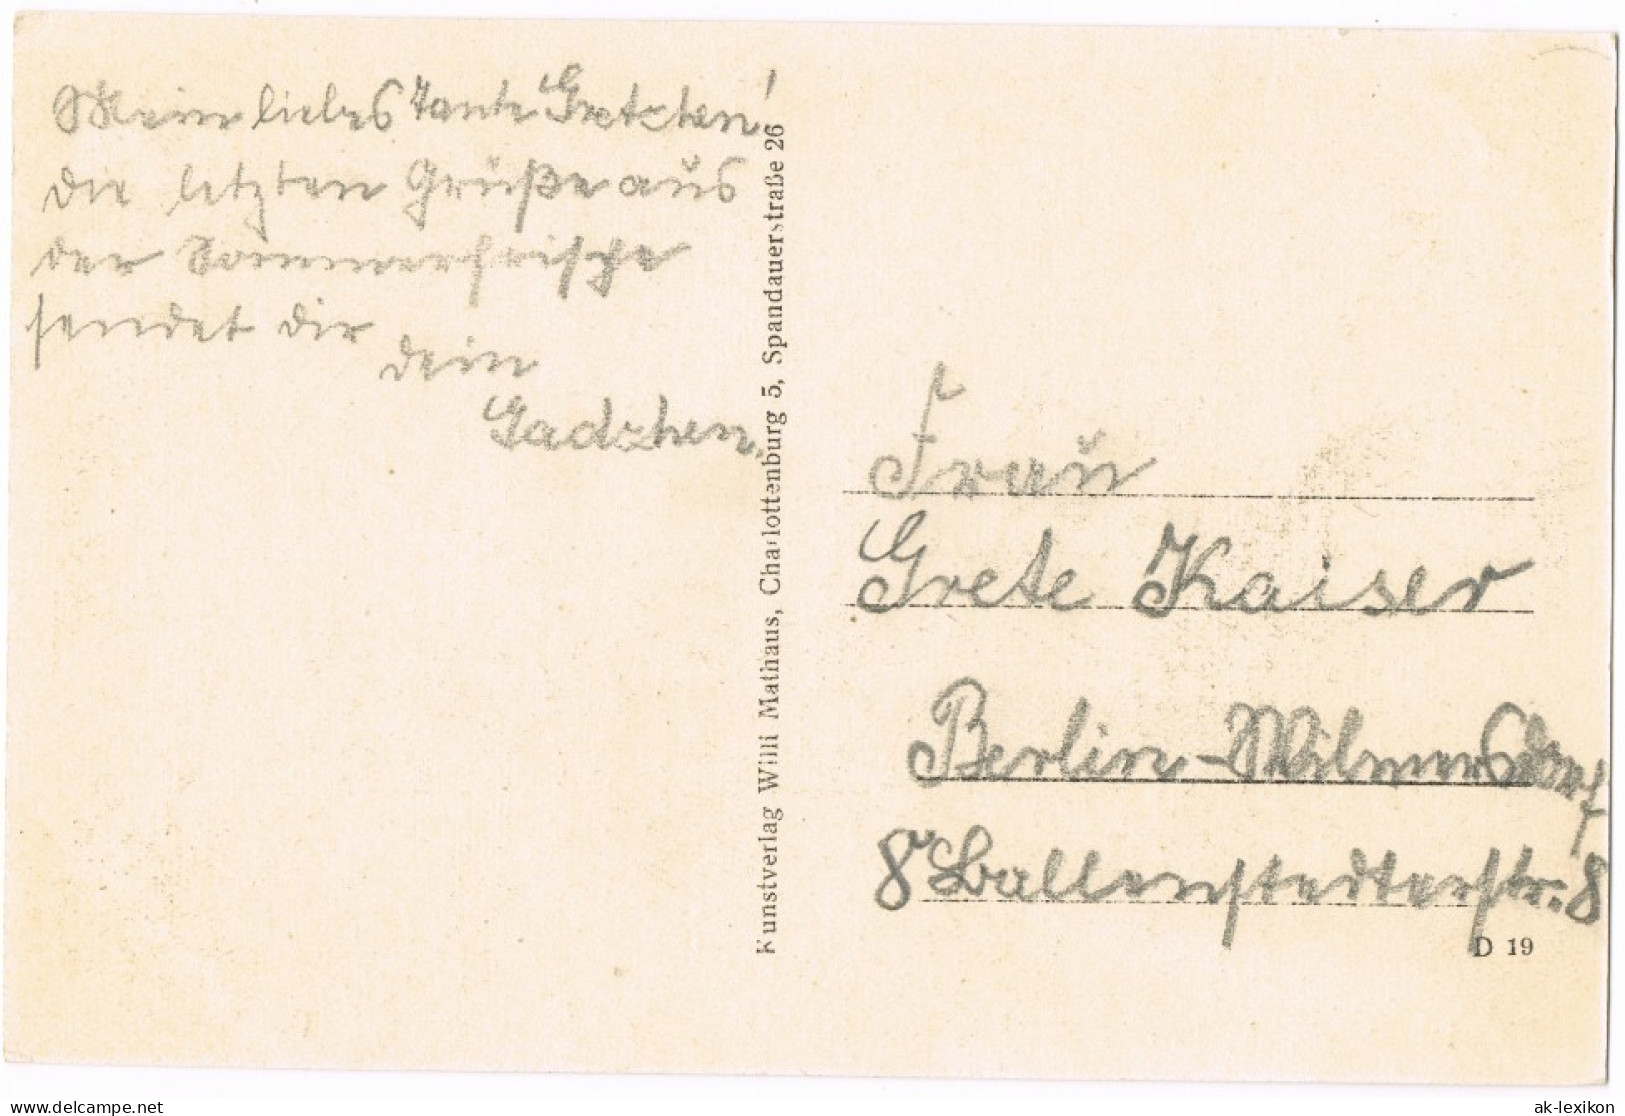 Mein liebes Tante Gretchen!
die letzten Grüße aus
der Sommerfrische
sendet dir
dein
Gadchen.
Kunstverlag Willi Mathaus, Charlottenburg 5, Spandauerstraße 26
Frau
Grete Kaiser
Berlin-Wilmersdorf
Ballenstedterstr. 8
D 19
ak-lexikon